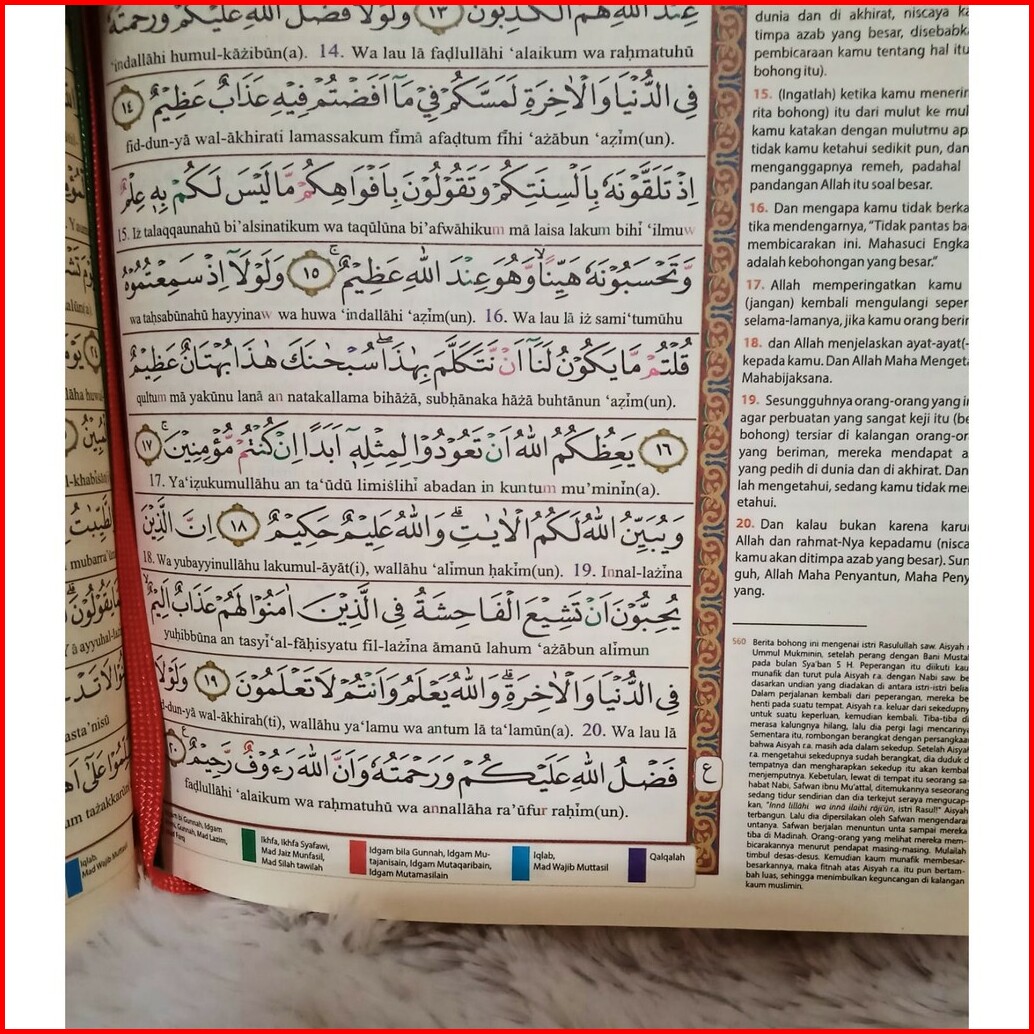 عِنْدَ اللّٰهِ هُمُ الْكٰذِبُوْنَ ١٣ وَلَوْلَا فَضْلُ اللّٰهِ عَلَيْكُمْ وَرَحْمَتُهٗ
‘indallāhi humul-kāżibūn(a). 14. Wa lau lā faḍlullāhi ‘alaikum wa raḥmatuhū
فِى الدُّنْيَا وَالْاٰخِرَةِ لَمَسَّكُمْ فِيْ مَآ اَفَضْتُمْ فِيْهِ عَذَابٌ عَظِيْمٌ ١٤
fid-dun-yā wal-ākhirati lamassakum fīmā afaḍtum fīhi ‘ażābun ‘aẓīm(un).
اِذْ تَلَقَّوْنَهٗ بِاَلْسِنَتِكُمْ وَتَقُوْلُوْنَ بِاَفْوَاهِكُمْ مَّا لَيْسَ لَكُمْ بِهٖ عِلْمٌ
15. Iż talaqqaunahū bi’alsinatikum wa taqūlūna bi’afwāhikum mā laisa lakum bihī ‘ilmuw
وَّتَحْسَبُوْنَهٗ هَيِّنًاۙ وَّهُوَ عِنْدَ اللّٰهِ عَظِيْمٌۚ ١٥ وَلَوْلَآ اِذْ سَمِعْتُمُوْهُ
wa taḥsabūnahū hayyinaw wa huwa ‘indallāhi ‘aẓīm(un). 16. Wa lau lā iż sami‘tumūhu
قُلْتُمْ مَّا يَكُوْنُ لَنَآ اَنْ نَّتَكَلَّمَ بِهٰذَاۖ سُبْحٰنَكَ هٰذَا بُهْتَانٌ عَظِيْمٌ
qultum mā yakūnu lanā an natakallama bihāżā, subḥānaka hāżā buhtānun ‘aẓīm(un).
١٦ يَعِظُكُمُ اللّٰهُ اَنْ تَعُوْدُوْا لِمِثْلِهٖٓ اَبَدًا اِنْ كُنْتُمْ مُّؤْمِنِيْنَۚ ١٧
17. Ya‘iẓukumullāhu an ta‘ūdū limiślihī abadan in kuntum mu’minīn(a).
وَيُبَيِّنُ اللّٰهُ لَكُمُ الْاٰيٰتِۗ وَاللّٰهُ عَلِيْمٌ حَكِيْمٌ ١٨ اِنَّ الَّذِيْنَ
18. Wa yubayyinullāhu lakumul-āyāt(i), wallāhu ‘alīmun ḥakīm(un). 19. Innal-lażīna
يُحِبُّوْنَ اَنْ تَشِيْعَ الْفَاحِشَةُ فِى الَّذِيْنَ اٰمَنُوْا لَهُمْ عَذَابٌ اَلِيْمٌۙ
yuḥibbūna an tasyī‘al-fāḥisyatu fil-lażīna āmanū lahum ‘ażābun alīmun
فِى الدُّنْيَا وَالْاٰخِرَةِۗ وَاللّٰهُ يَعْلَمُ وَاَنْتُمْ لَا تَعْلَمُوْنَ ١٩ وَلَوْلَا
d-dun-yā wal-ākhirah(ti), wallāhu ya‘lamu wa antum lā ta‘lamūn(a). 20. Wa lau lā
فَضْلُ اللّٰهِ عَلَيْكُمْ وَرَحْمَتُهٗ وَاَنَّ اللّٰهَ رَءُوْفٌ رَّحِيْمٌ ٢٠
faḍlullāhi ‘alaikum wa raḥmatuhū wa annallāha ra’ūfur raḥīm(un).
ع
Ikhfa, Ikhfa Syafawi,
Mad Jaiz Munfasil,
Mad Silah tawilah
Idgam bila Gunnah, Idgam Mu-
tajanisain, Idgam Mutaqaribain,
Idgam Mutamasilain
Iqlab,
Mad Wajib Muttasil
Qalqalah
Iqlab,
Mad Wajib Muttasil
dunia dan di akhirat, niscaya
timpa azab yang besar, disebabk
pembicaraan kamu tentang hal itu
bohong itu).
15. (Ingatlah) ketika kamu menerim
rita bohong) itu dari mulut ke mul
kamu katakan dengan mulutmu ap
tidak kamu ketahui sedikit pun, dan
menganggapnya remeh, padahal
pandangan Allah itu soal besar.
16. Dan mengapa kamu tidak berka
tika mendengarnya, “Tidak pantas ba
membicarakan ini. Mahasuci Engka
adalah kebohongan yang besar.”
17. Allah memperingatkan kamu
(jangan) kembali mengulangi seper
selama-lamanya, jika kamu orang berim
18. dan Allah menjelaskan ayat-ayat(-
kepada kamu. Dan Allah Maha Menget
Mahabijaksana.
19. Sesungguhnya orang-orang yang in
agar perbuatan yang sangat keji itu (be
bohong) tersiar di kalangan orang-or
yang beriman, mereka mendapat a
yang pedih di dunia dan di akhirat. Dan
lah mengetahui, sedang kamu tidak me
etahui.
20. Dan kalau bukan karena karu
Allah dan rahmat-Nya kepadamu (nisca
kamu akan ditimpa azab yang besar). Sun
guh, Allah Maha Penyantun, Maha Peny
yang.
560 Berita bohong ini mengenai istri Rasulullah saw. Aisyah r
Ummul Mukminin, setelah perang dengan Bani Mustal
pada bulan Sya'ban 5 H. Peperangan itu diikuti kau
munafik dan turut pula Aisyah r.a. dengan Nabi saw be
dasarkan undian yang diadakan di antara istri-istri belia
Dalam perjalanan kembali dari peperangan, mereka be
henti pada suatu tempat. Aisyah r.a. keluar dari sekedupny
untuk suatu keperluan, kemudian kembali. Tiba-tiba di
merasa kalungnya hilang, lalu dia pergi lagi mencarinya
Sementara itu, rombongan berangkat dengan persangkaa
bahwa Aisyah r.a. masih ada dalam sekedup. Setelah Aisyah
r.a. mengetahui sekedupnya sudah berangkat, dia duduk d
tempatnya dan mengharapkan sekedup itu akan kembal
menjemputnya. Kebetulan, lewat di tempat itu seorang sa-
habat Nabi, Safwan ibnu Mu'attal, ditemukannya seseorang
sedang tidur sendirian dan dia terkejut seraya mengucap-
kan, "Innā lillāhi wa innā ilaihi rāji'ūn, istri Rasul!" Aisyah
terbangun. Lalu dia dipersilakan oleh Safwan mengendarai
untanya. Safwan berjalan menuntun unta sampai mereka
tiba di Madinah. Orang-orang yang melihat mereka mem-
bicarakannya menurut pendapat masing-masing. Mulailah
timbul desas-desus. Kemudian kaum munafik membesar-
besarkannya, maka fitnah atas Aisyah r.a. itu pun bertam-
bah luas, sehingga menimbulkan keguncangan di kalangan
kaum muslimin.